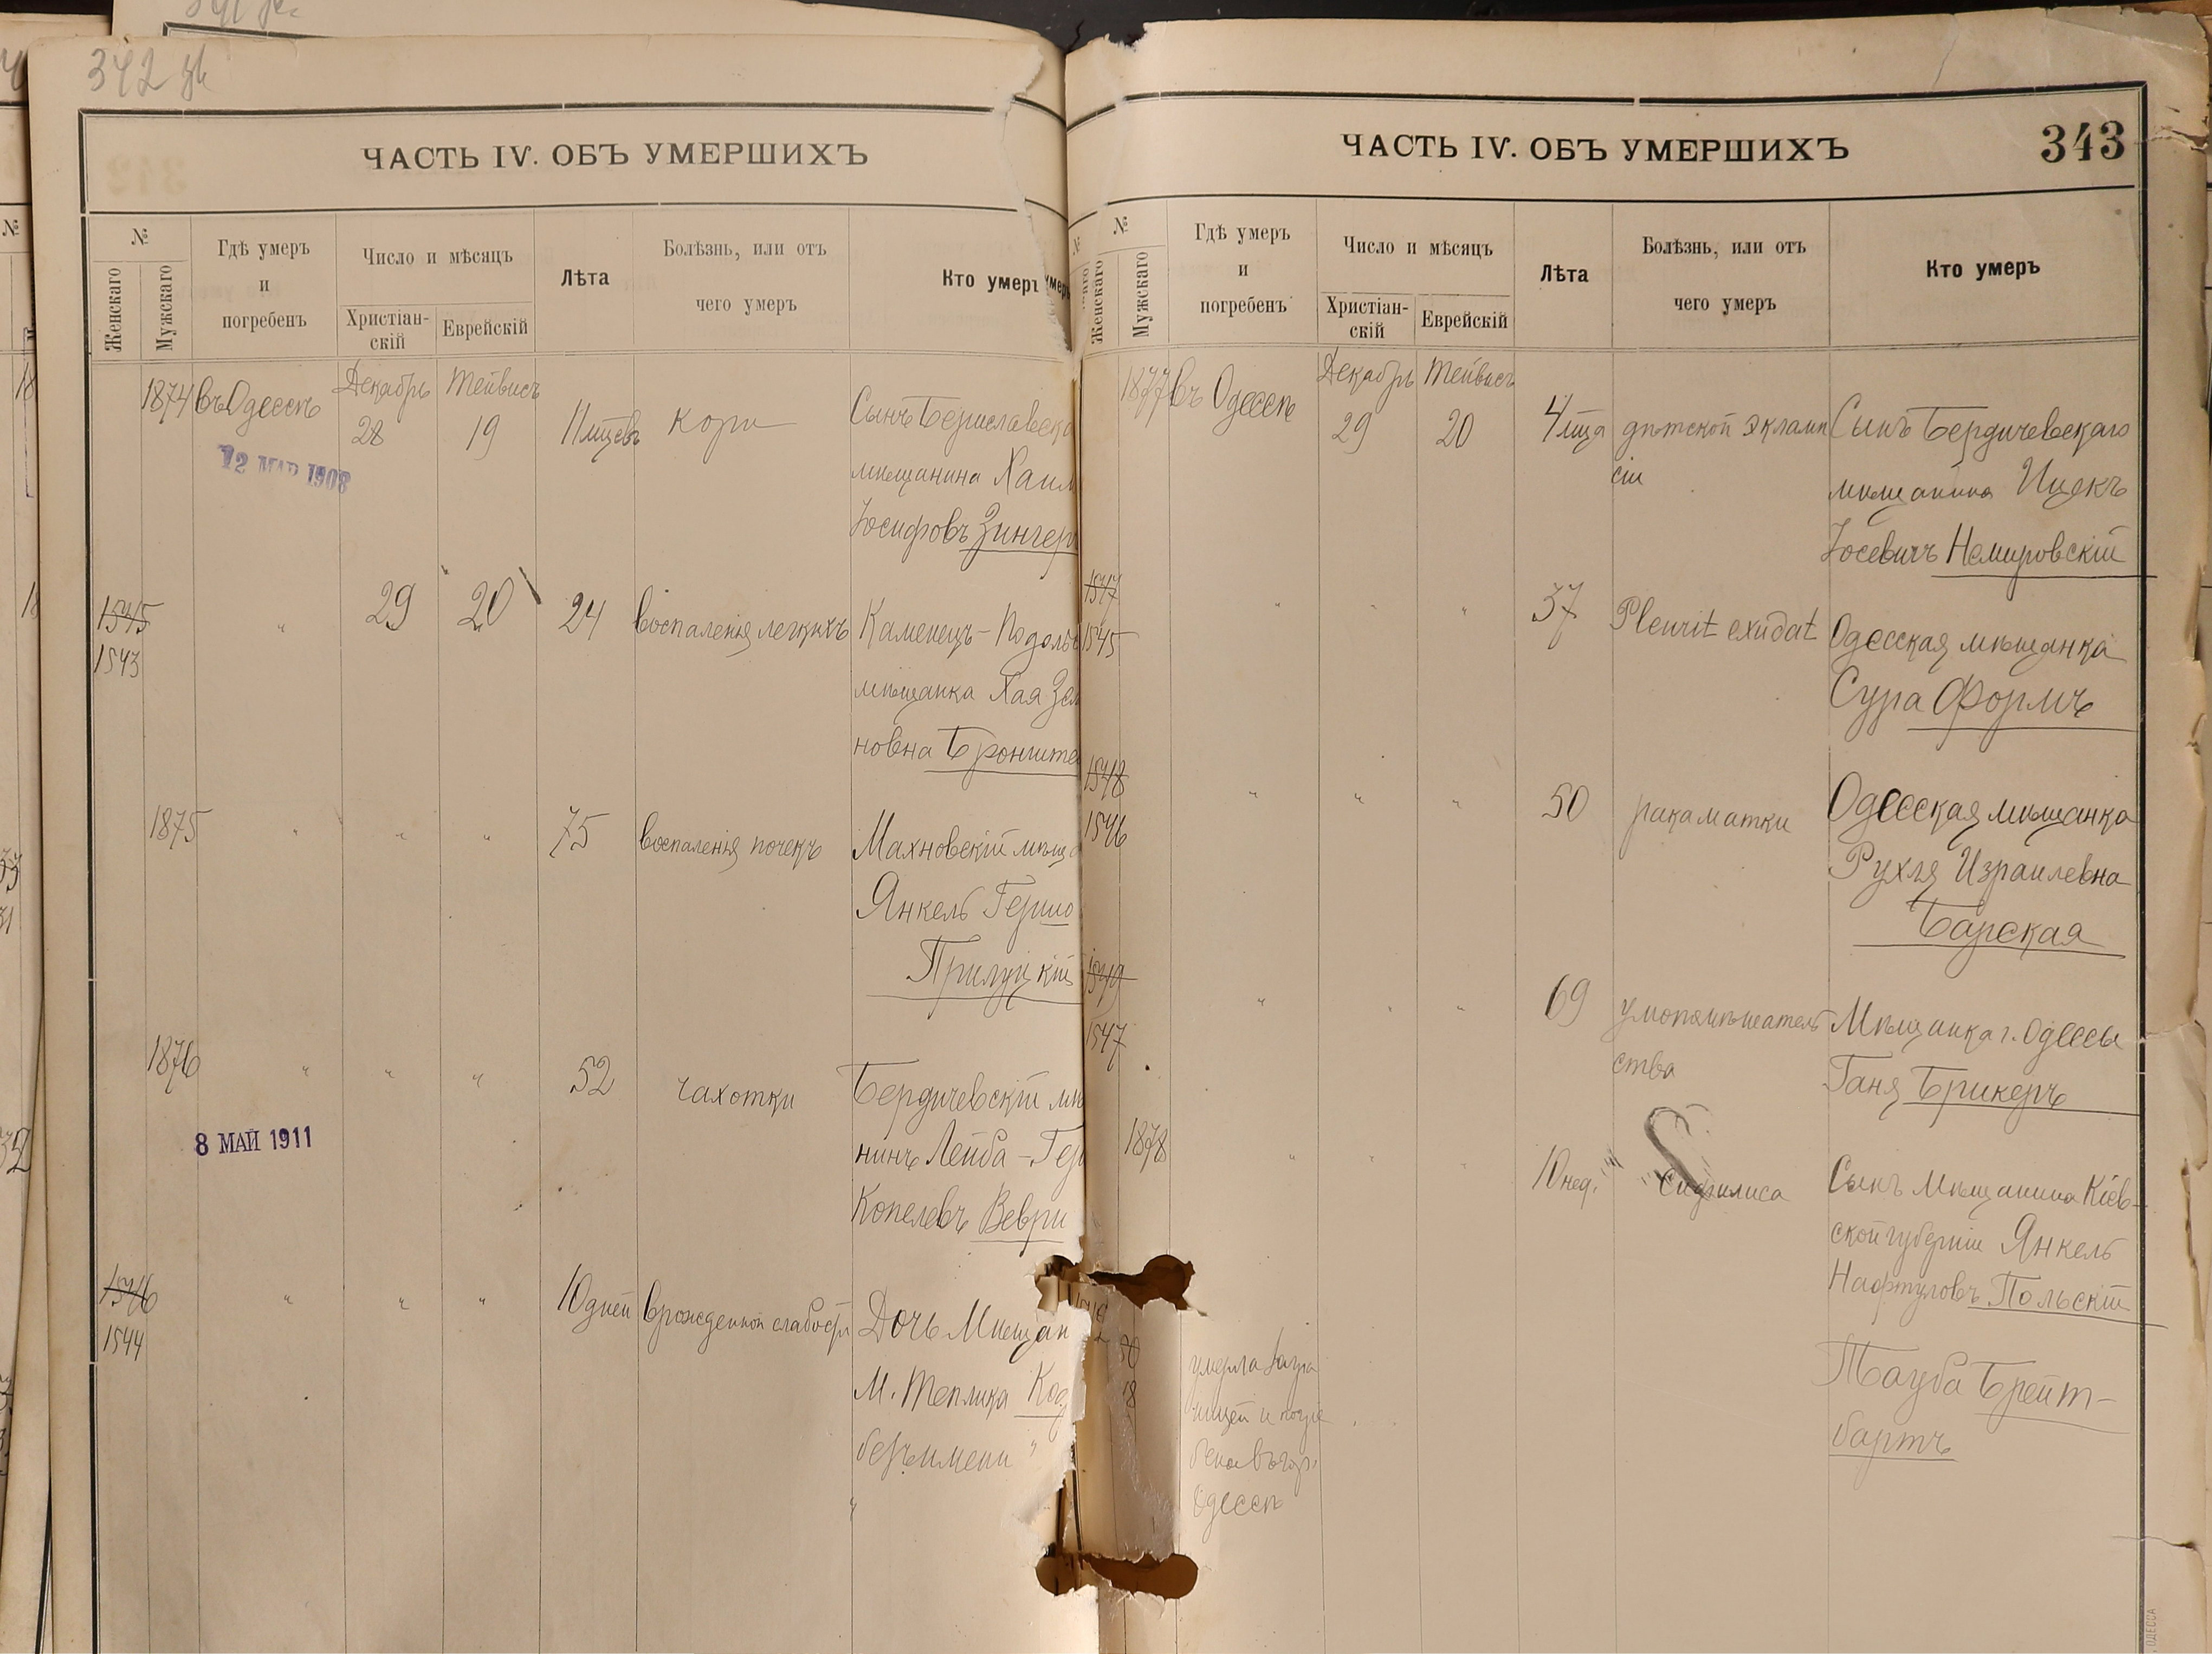 342 
ЧАСТЬ IV. ОБЪ УМЕРШИХЪ
№
Женскаго
Мужскаго
Гдѣ умеръ
и
погребенъ
Число и мѣсяцъ
Христіан-
скій
Еврейскій
Лѣта
Болѣзнь, или отъ
чего умеръ
Кто умеръ
1874 въ Одессѣ Декабрь 28 Тейвисъ 19 11 мцевъ кори Сынъ Бериславска
мѣщанина Хаим
Іосифовъ Зингер
12 МАР 1908
1545 " 29 20 24 воспаленія легкихъ Каменецъ-Подоль
1543
мѣщанка Хая Зел
новна Бронште
1875 " " " 75 воспаленія почекъ Махновскій мѣща
Янкель Гершо
Прилуцкій
1876 " " " 52 чахотки Бердичевскій мѣ
8 МАЙ 1911
нинъ Лейба-Гер
Копелевъ Веври
1546 " " " 10 дней врожденной слабости Дочь Мѣщан
1544
М. Теплика Код
безъ имени "
ЧАСТЬ IV. ОБЪ УМЕРШИХЪ
343
№
Женскаго
Мужскаго
Гдѣ умеръ
и
погребенъ
Число и мѣсяцъ
Христіан-
скій
Еврейскій
Лѣта
Болѣзнь, или отъ
чего умеръ
Кто умеръ
1877 въ Одессѣ Декабрь 29 Тейвисъ 20 4 мца дѣтской эклами Сынъ Бердичевскаго
сіи
мѣщанина Ицекъ
Іосевичъ Немировскій
1547
1545 " " " 37 Pleurit exudat Одесская мѣщанка
Сура Формъ
1548
1546 " " " 50 рака матки Одесская мѣщанка
Рухля Израилевна
Барская
1549
1547 " " " 69 умопомѣшатель Мѣщанка г. Одессы
ства
Ганя Брикеръ
1878 " " " 10 нед. Сифилиса Сынъ Мѣщанина Кіев-
ской губерніи Янкель
Нафтуловъ Польскій
умерла загра
ницей и погре
бена въ гор.
Одессѣ
Тауба Брейт-
бартъ
ОДЕССА